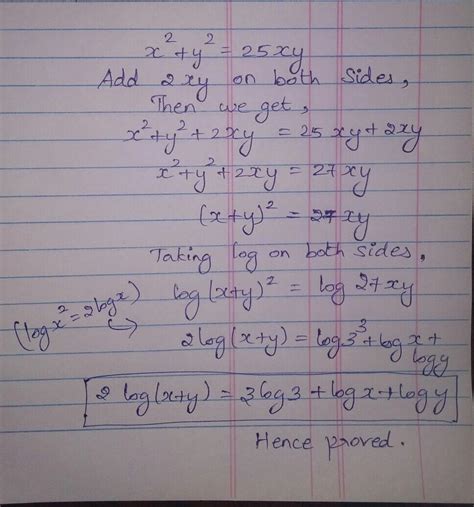 x² + y² = 25xy
Add 2xy on both sides,
Then we get,
x² + y² + 2xy = 25xy + 2xy
x² + y² + 2xy = 27xy
(x+y)² = 27xy
Taking log on both sides,
log(x+y)² = log 27xy
(log x² = 2logx)
2log(x+y) = log3³ + logx +
logy
2 log(x+y) = 3log3 + logx + logy
Hence proved.